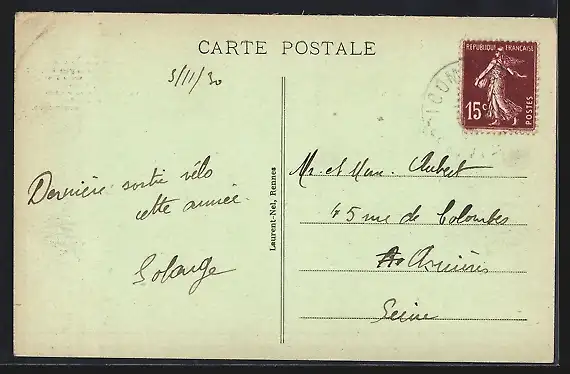 CARTE POSTALE
3/11/30
RÉPUBLIQUE FRANÇAISE
15c
POSTES
Dernière sortie vélo
cette année.
Solange
Laurent-Nel, Rennes
Mr. et Mme. Aubert
45 rue de Colombes
Asnières
Seine